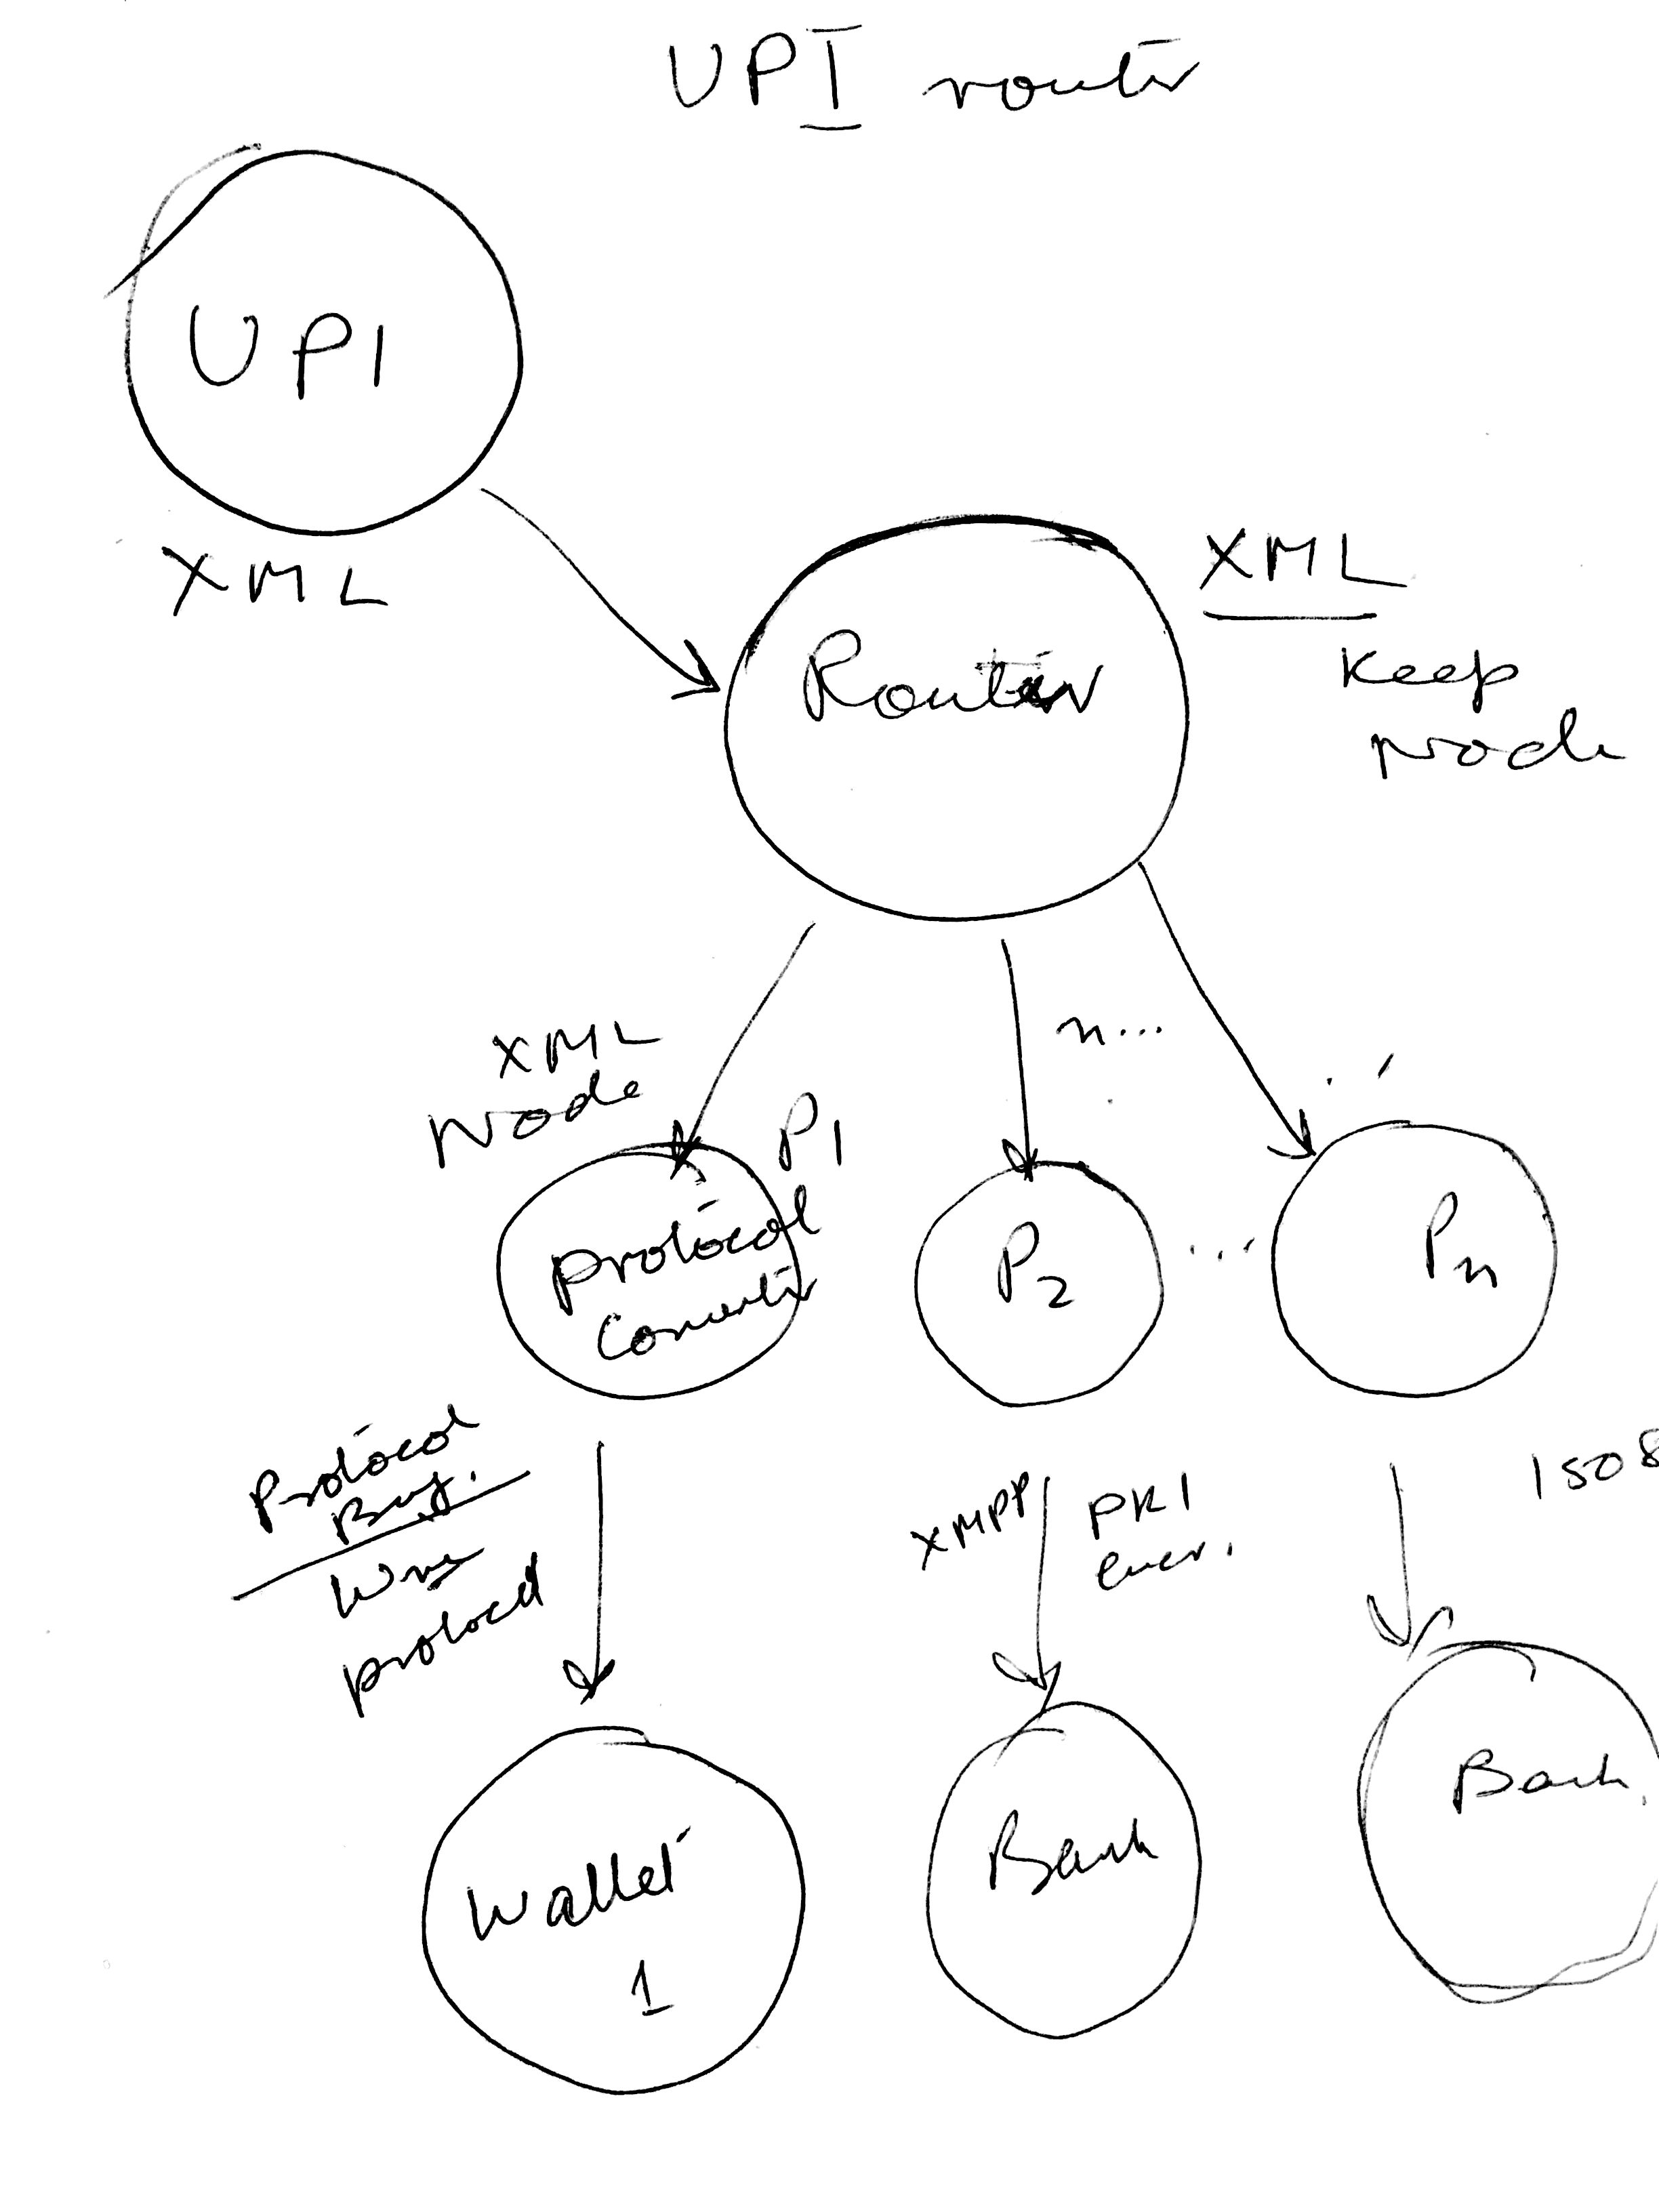 UPI router
UPI
XML
Router
XML
Keep
Node
XML
Node
n...
P1
Protocol
Converter
P2
...
Pn
Protocol
Buf.
Wire
protocol
XMPP
PKI
encr.
ISO8
Wallet
1
Bank
Bank